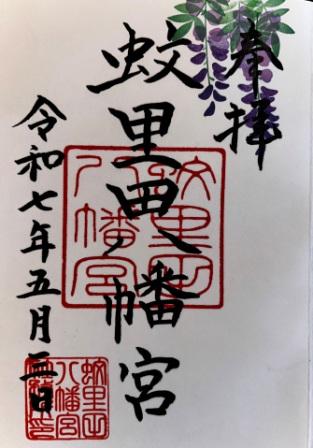 奉拝
蚊里田八幡宮
令和七年五月 日
蚊里田
八幡宮
蚊里田
八幡宮